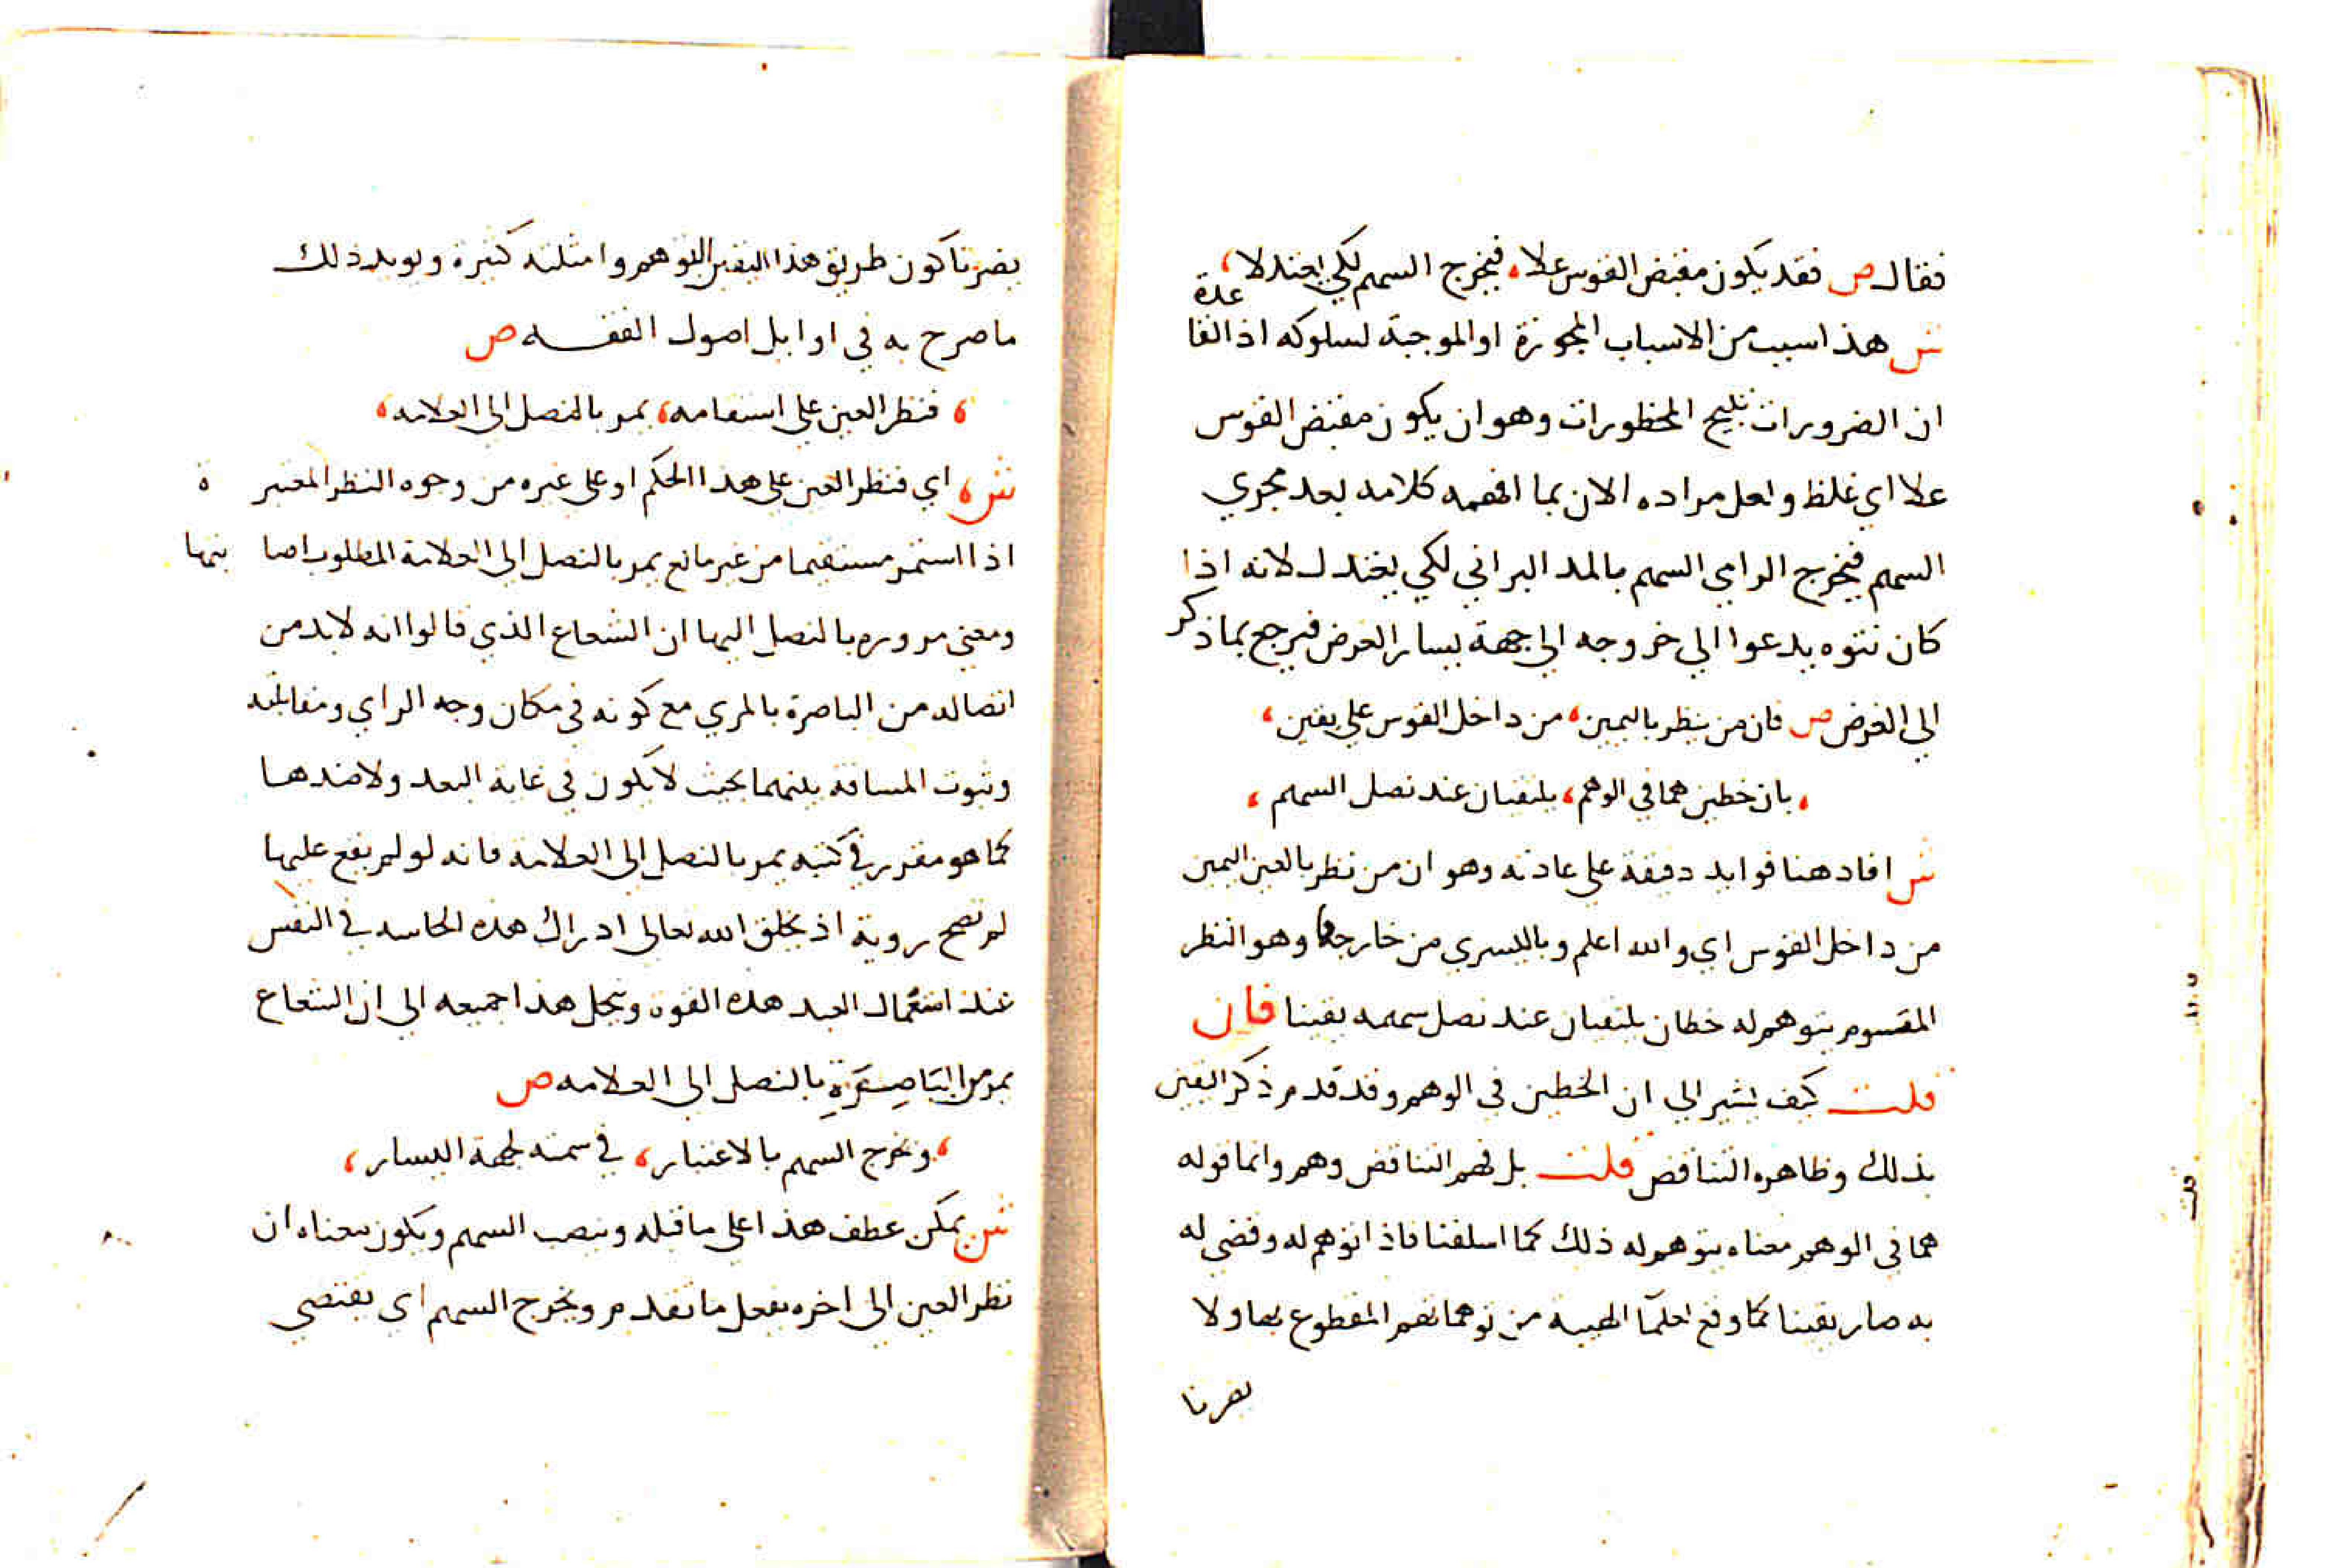 فقال ص فقد يكون مقبض القوس علا، فيخرج السهم لكي يعتدلا،
ش هذا سبب من الاسباب المجوزة او الموجبة لسلوكه اذ القاعدة
ان الضرورات تبيح المحظورات وهو ان يكون مقبض القوس
علا اي غلظ ولعل مراده الان بما افهمه كلامه بعد مجري
السهم فيخرج الرامي السهم بالمد البراني لكي يعتدل لانه اذا
كان نتوه يدعوا الي خروجه الي جهة يسار الغرض فيرجع بما ذكر
الي الغرض ص فان من ينظر باليمين، من داخل القوس علي يقين،
، بان خطين هما في الوهم، يلتقيان عند نصل السهم،
ش افاد هنا فوايد دقيقة علي عادته وهو ان من نظر بالعين اليمين
من داخل القوس اي والله اعلم وباليسري من خارجها وهو النظر
المقسوم يتوهم له خطان يلتقيان عند نصل سهمه يقينا فان
قلت كيف يشير الي ان الخطين في الوهم وقد قدم ذكر اليقين
بذلك وظاهره التناقض قلت بل فهم التناقض وهم وانما قوله
هما في الوهم معناه يتوهم له ذلك كما اسلفنا فاذا توهم له وقضي له
به صار يقينا كما وقع لعلما الهيية من توهماتهم المقطوع بها ولا
يضرنا
يضرنا كون طريق هذا اليقين التوهم وامثلته كثيرة ويويد ذلك
ما صرح به في اوايل اصول الفقه ص
، فنظر العين علي استقامه، يمر بالنصل الي العلامه،
ش، اي فنظر العين علي هذا الحكم او علي غيره من وجوه النظر المعتبرة
اذا استمر مستقيما من غير مانع يمر بالنصل الي العلامة المطلوب اصابتها
ومعني مروره بالنصل اليها ان الشعاع الذي قالوا انه لابد من
اتصاله من الباصرة بالمري مع كونه في مكان وجه الراي ومقابلته
وثبوت المسافة بينهما بحيث لا يكون في غاية البعد ولا ضدها
كما هو مقرر في كتبه يمر بالنصل الي العلامه فانه لو لم يقع عليها
لم تصح روية اذ يخلق الله تعالي ادراك هذه الحاسه في النفس
عند استعمال العبد هذه القوة وينحل هذا جميعه الي ان الشعاع
يمر من الباصرة بالنصل الي العلامه ص
، ونخرج السهم بالاعتبار، في سمته لجهة اليسار،
ش يمكن عطف هذا علي ما قبله ونصب السهم ويكون معناه ان
نظر العين الي اخره يفعل ما تقدم ويخرج السهم اي يقتضي